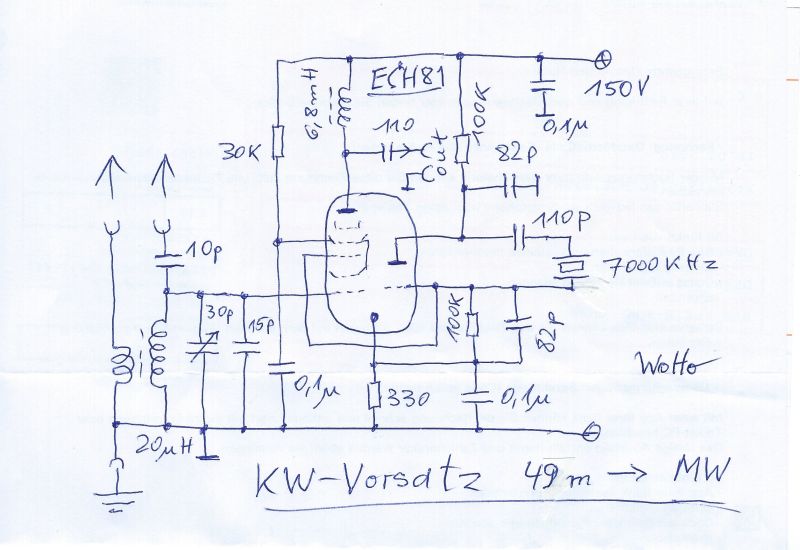 ECH81
6,8mH
150V
0,1µ
30K
110
Out
100K
82p
110p
10p
7000KHz
30p
15p
100K
82p
0,1µ
330
0,1µ
20µH
KW-Vorsatz 49m → MW